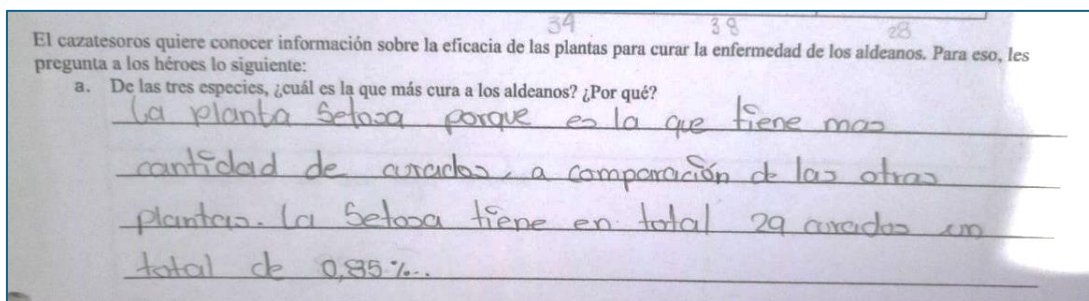 34 38 28
El cazatesoros quiere conocer información sobre la eficacia de las plantas para curar la enfermedad de los aldeanos. Para eso, les
pregunta a los héroes lo siguiente:
a. De las tres especies, ¿cuál es la que más cura a los aldeanos? ¿Por qué?
La planta Setosa porque es la que tiene mas
cantidad de curados, a comparación de las otras
plantas. La Setosa tiene en total 29 curados un
total de 0,85%..